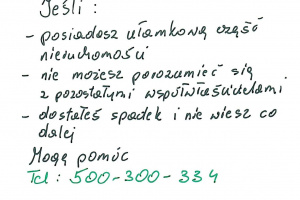 Jeśli :
- posiadasz ułamkową część
nieruchomości
- nie możesz porozumieć się
z pozostałymi współwłaścicielami
- dostałeś spadek i nie wiesz co
dalej
Mogę pomóc
Tel : 500-300-334